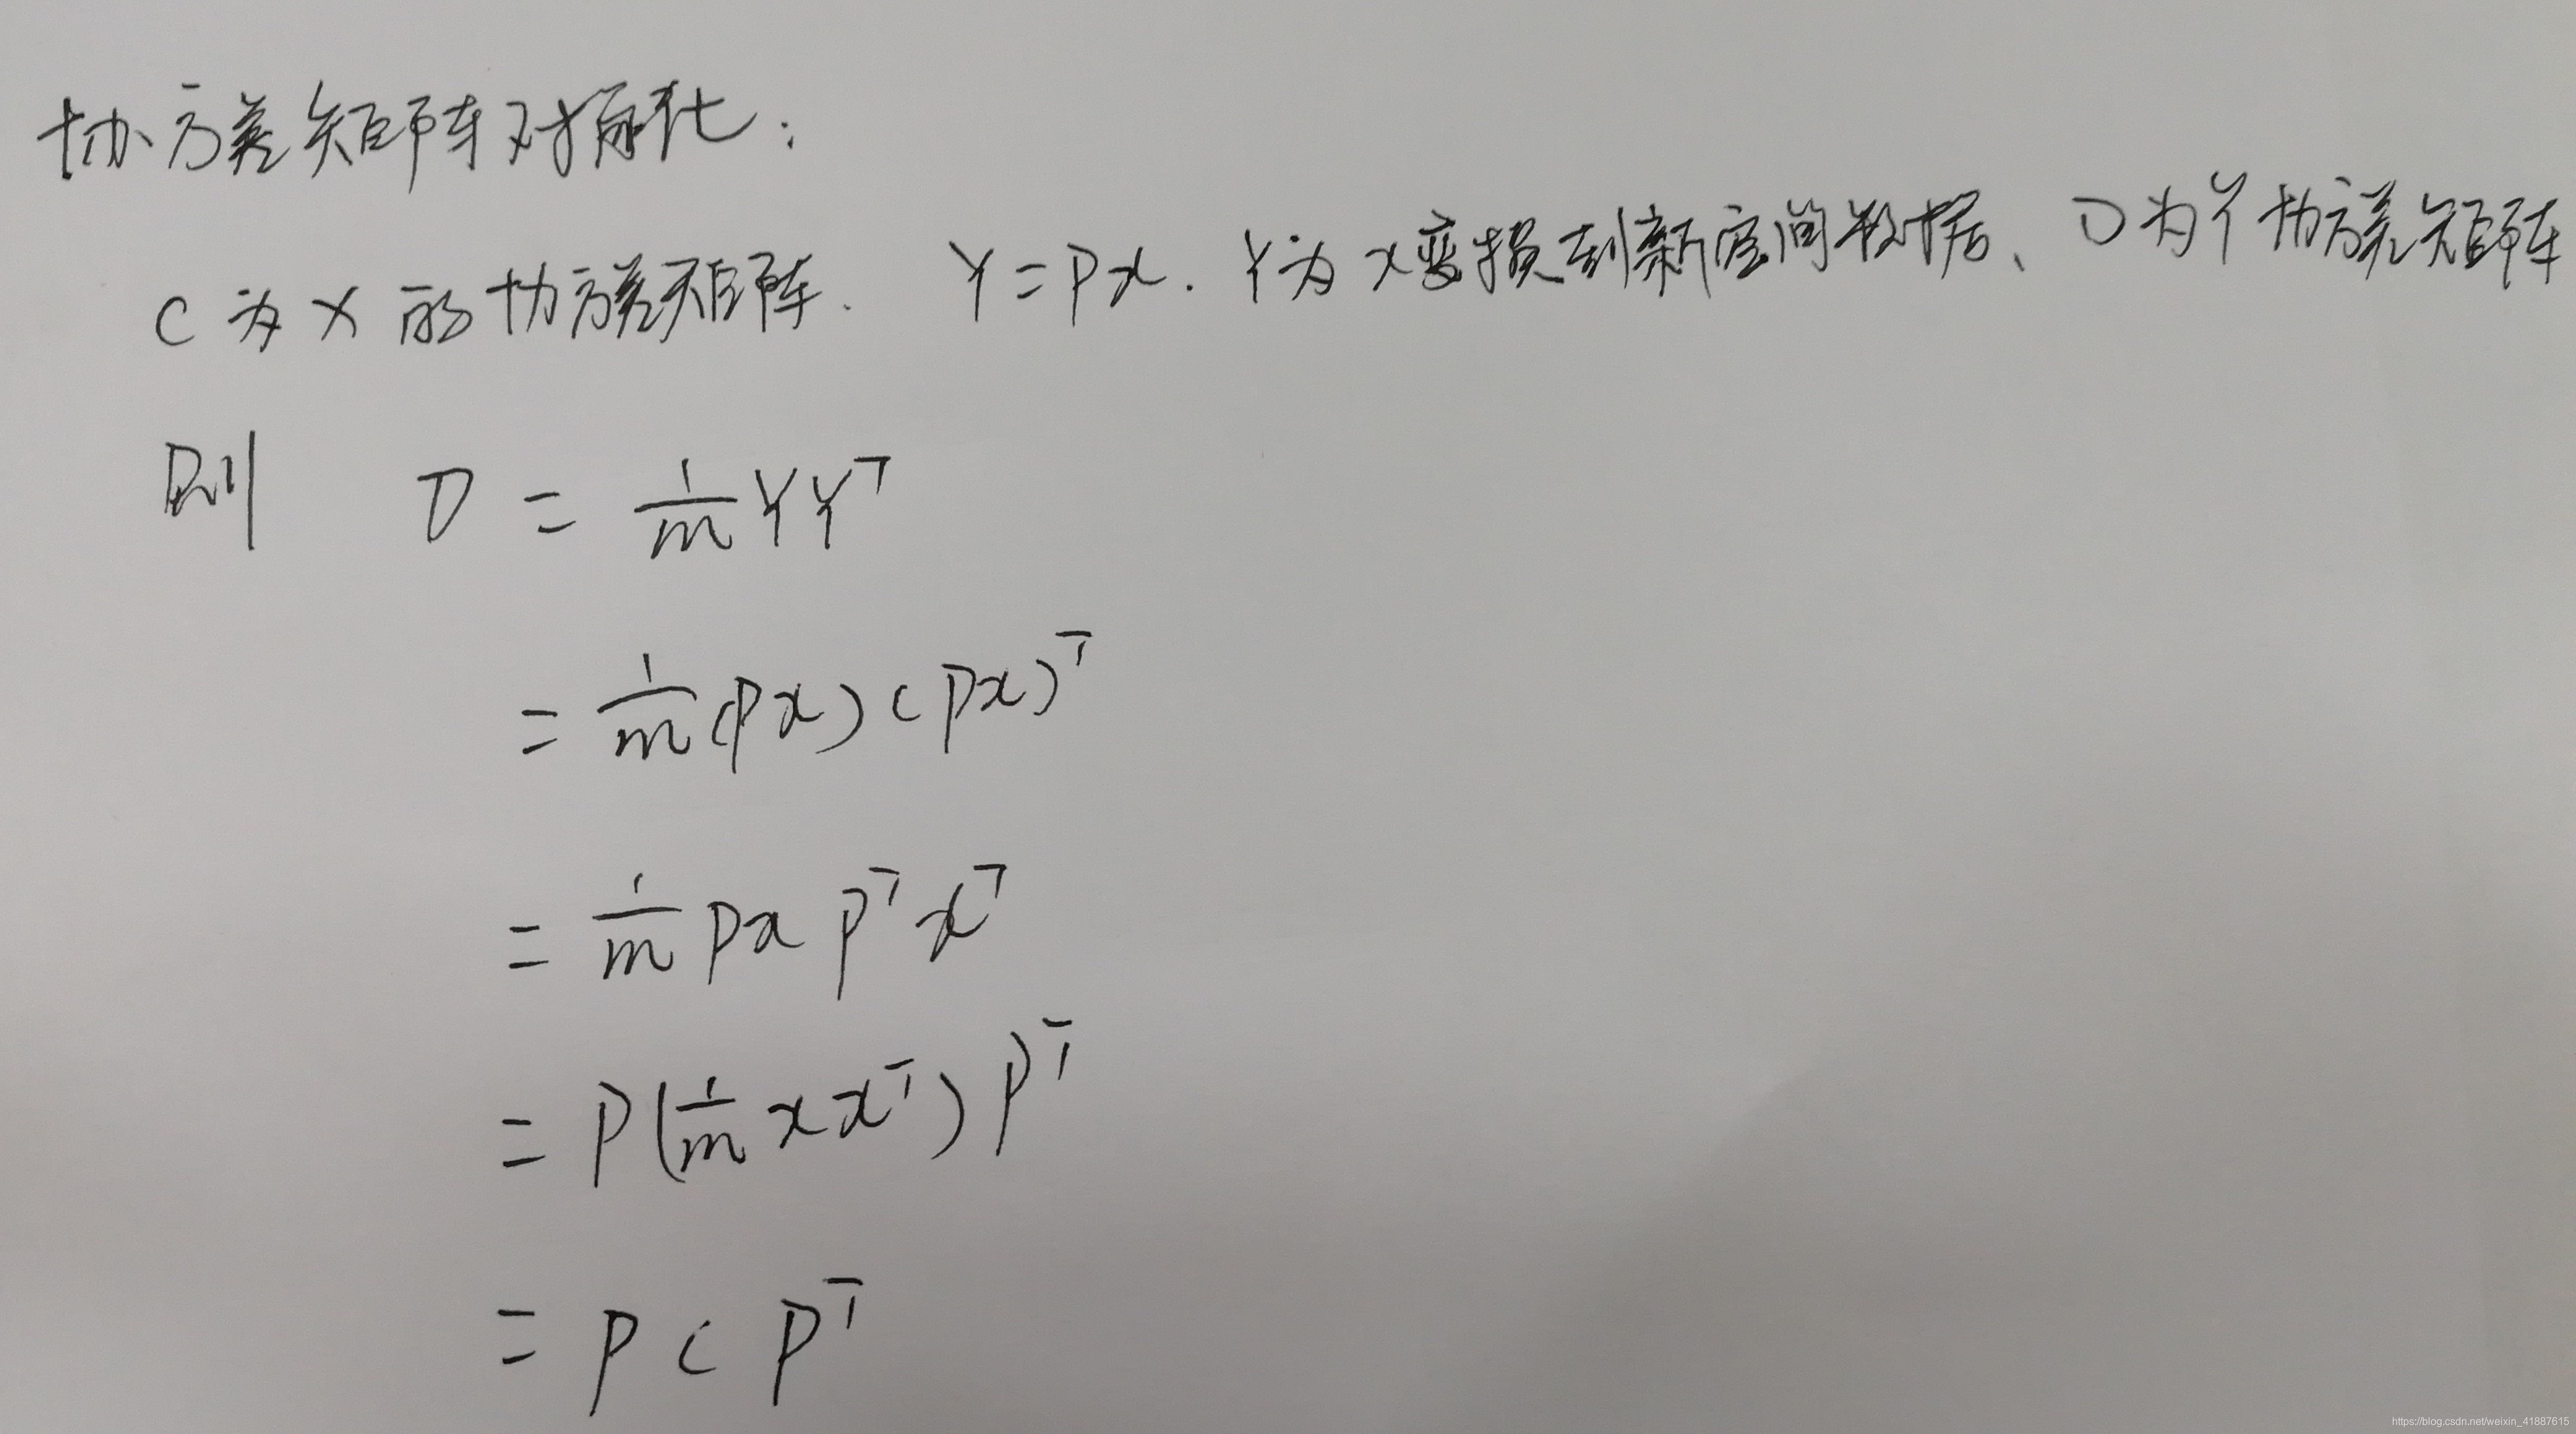 协方差矩阵对角化：
C为X的协方差矩阵. Y=Px. Y为x变换到新空间数据、D为Y协方差矩阵
则 D = 1/m YYᵀ
= 1/m (Px)(Px)ᵀ
= 1/m Px Pᵀxᵀ
= P(1/m x xᵀ)Pᵀ
= P C Pᵀ
https://blog.csdn.net/weixin_41887615